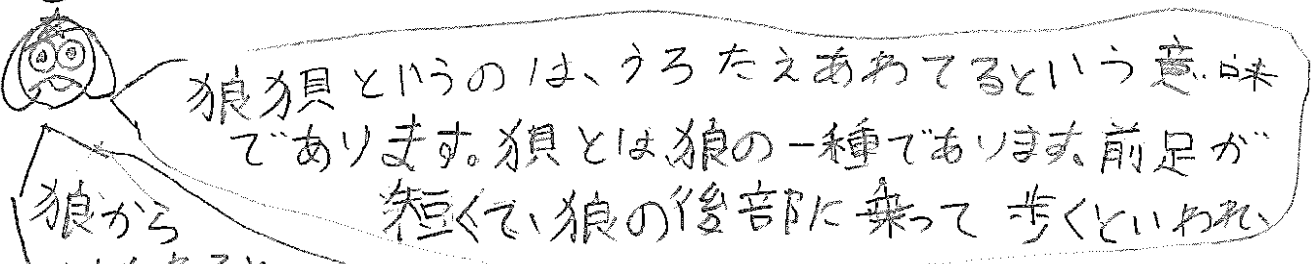 狼狽というのは、うろたえあわてるという意味
であります。狽とは、狼の一種であります、前足が
短くて、狼の後部に乗って歩くといわれ、
狼から